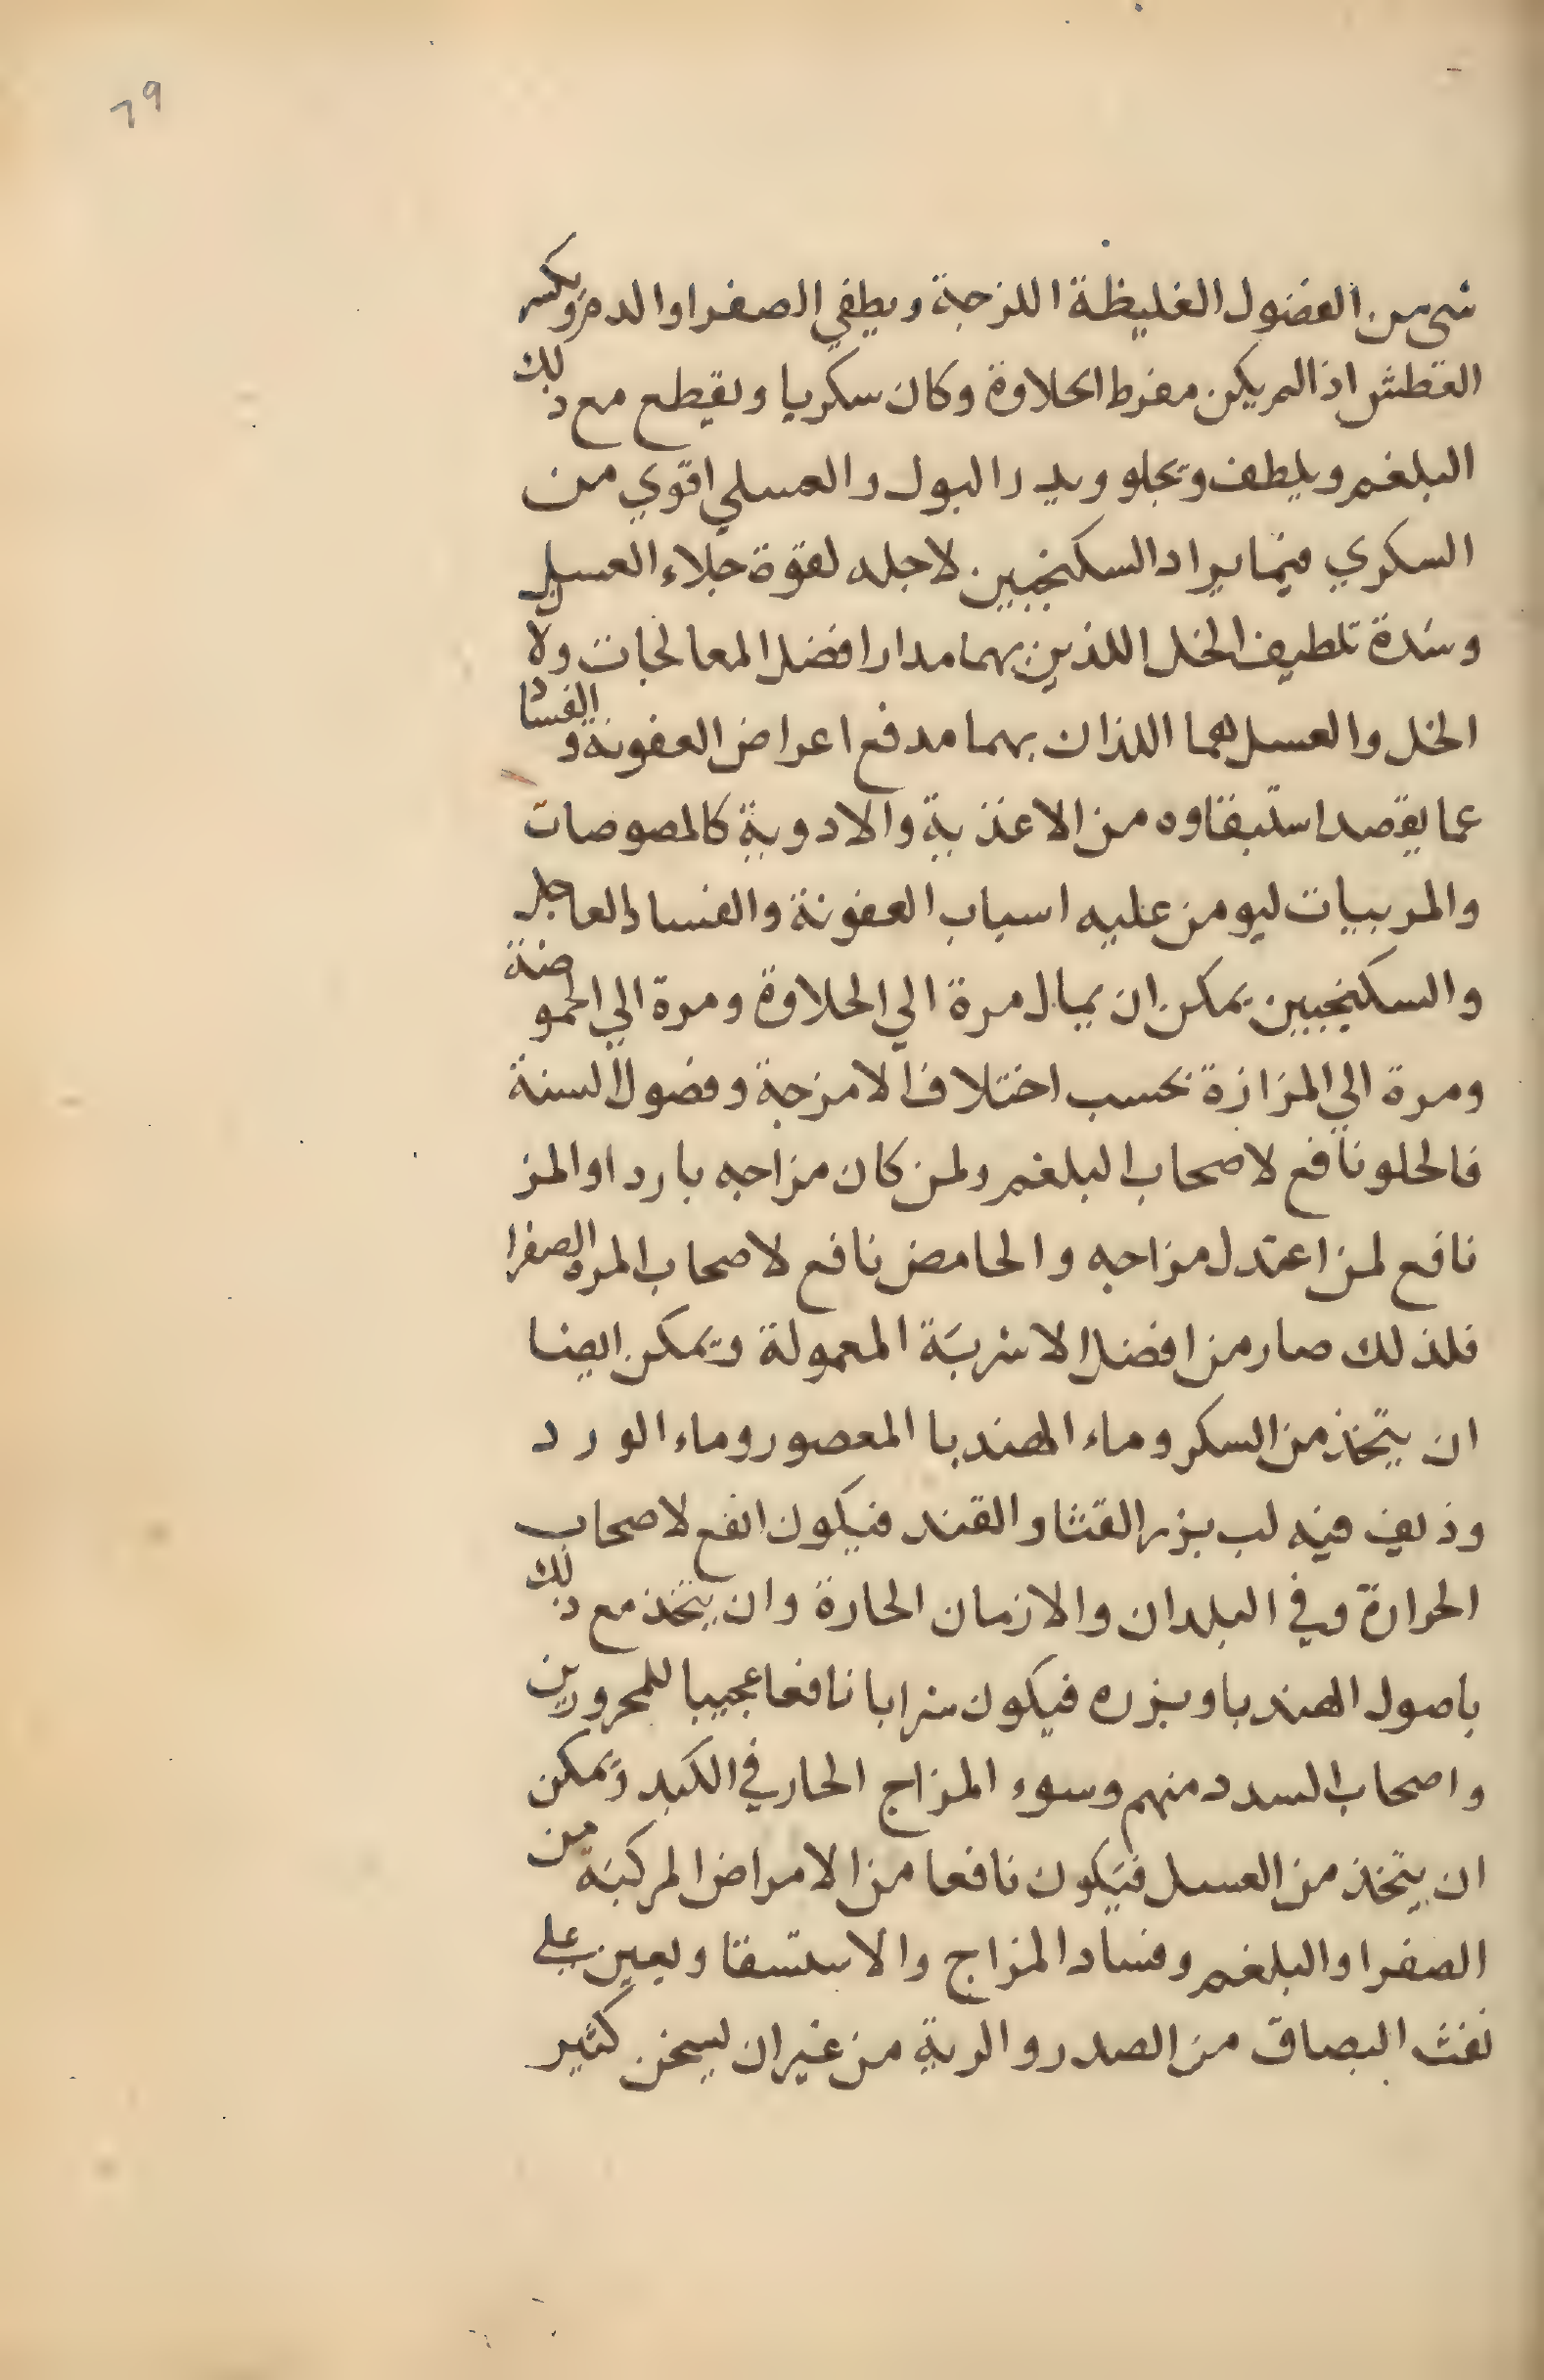 ٦٩
شى من الفضول الغليظة اللزجة ويطفي الصفرا والدم ويكسر
العطش اذا لم يكن مفرط الحلاوة وكان سكريا ويقطع مع ذلك
البلغم ويلطف ويجلو ويدر البول والعسلي اقوي من
السكري فيما يراد السكنجبين لاجله لقوة جلاء العسل
وشدة تلطيف الخل اللذين بهما مدار افضل المعالجات ولان
الخل والعسل هما اللذان بهما مدفع اعراض العفونة والفساد
عما يقصد استبقاوه من الاغذية والادوية كالمصوصات
والمربيات ليومن عليه اسباب العفونة والفساد العاجل
والسكنجبين يمكن ان يمال مرة الي الحلاوة ومرة الي الحموضة
ومرة الي المزازة بحسب اختلاف الامزجة وفصول السنة
فالحلو نافع لاصحاب البلغم ولمن كان مزاجه باردا والمز
نافع لمن اعتدل مزاجه والحامض نافع لاصحاب المره الصفرا
فلذلك صار من افضل الاشربة المعمولة ويمكن ايضا
ان يتخذ من السكر وماء الهندبا المعصور وماء الورد
وذيف فيه لب بزر القثا والقند فيكون انفع لاصحاب
الحرارة وفي البلدان والازمان الحارة وان يتخذ مع ذلك
باصول الهندبا وبزره فيكون شرابا نافعا عجيبا للمحرورين
واصحاب السدد منهم وسوء المزاج الحار في الكبد ويمكن
ان يتخذ من العسل فيكون نافعا من الامراض المركبة من
الصفرا والبلغم وفساد المزاج والاستسقا ويعين علي
نفث البصاق من الصدر والرية من غير ان يسخن كثير